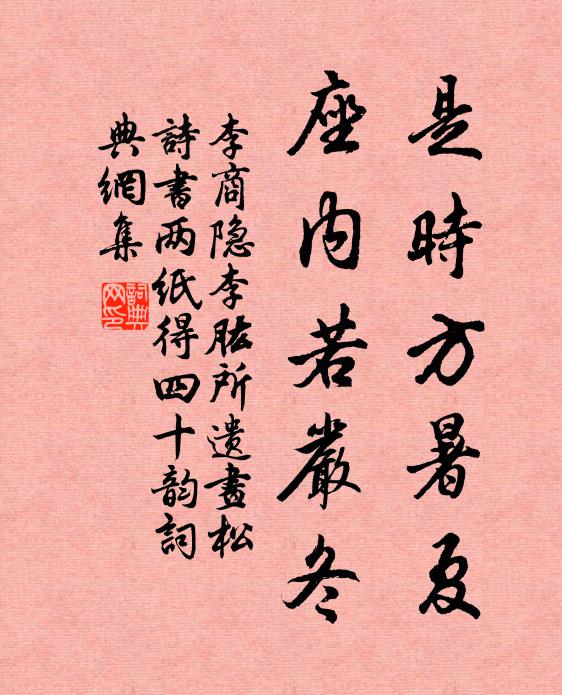 是時方暑夏
座内若嚴冬
李商隐李肱所遺畫松
詩書两紙得四十韵詞
典網集
詞典网印